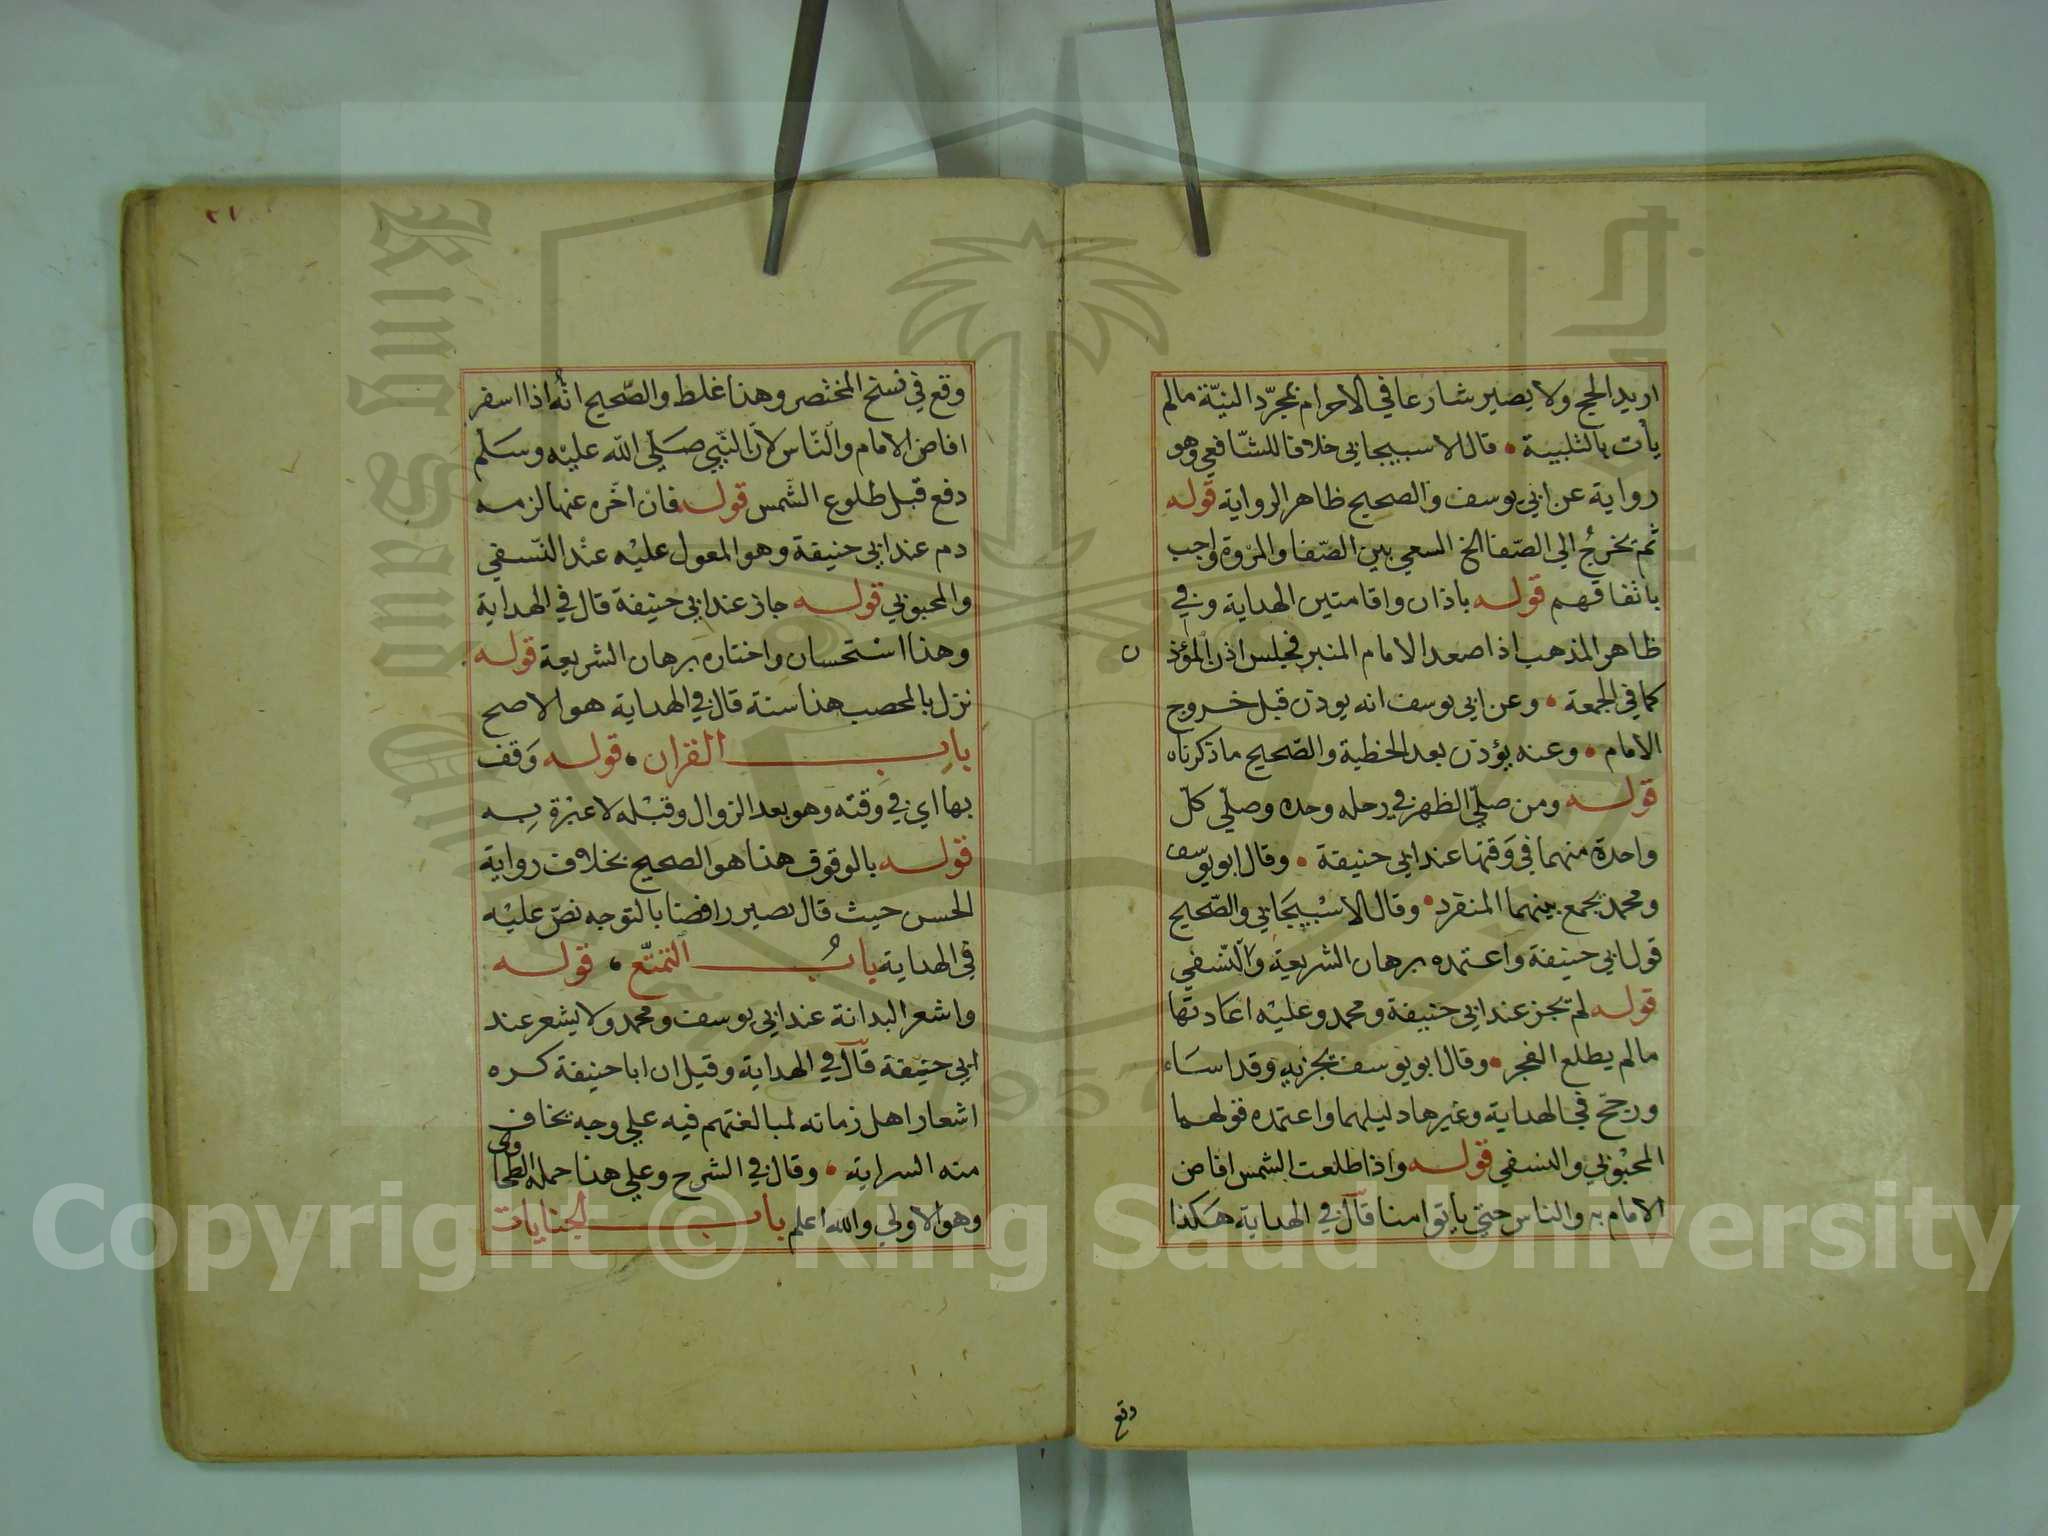 اريد الحج ولا يصير شارعا في الاحرام بمجرّد النيّة مالم
يأت بالتلبية • قال الاسبيجابي خلافا للشافعي وهو
رواية عن ابي يوسف والصحيح ظاهر الرواية قوله
ثم يخرج الى الصّفا الخ السعي بين الصّفا والمروة واجب
باتفاقهم قوله باذان واقامتين الهداية وفي
ظاهر المذهب اذا صعد الامام المنبر فجلس اذن المؤذ
ن
كما في الجمعة • وعن ابي يوسف انه يوذن قبل خروج
الامام • وعنه يؤذن بعد الخطبة والصّحيح ما ذكرناه
قوله ومن صلّي الظهر في رحله وحده وصلّي كلّ
واحدة منهما في وقتها عند ابي حنيفة • وقال ابو يوسف
ومحمد يجمع بينهما المنفرد • وقال الاسبيجابي والصّحيح
قول ابي حنيفة واعتمده برهان الشريعة والنّسفي
قوله لم يجز عند ابي حنيفة ومحمد وعليه اعادتها
مالم يطلع الفجر • وقال ابو يوسف يجزيه وقد اساء
ورجّح في الهداية وغيرها دليلهما واعتمده قولهما
المحبوبي والنسفي قوله واذا طلعت الشمس افاض
الامام به والناس حتي يأتوا منا قال في الهداية هكذا
وقع
٢٧
وقع في نسخ المختصر وهذا غلط والصّحيح انّه اذا اسفر
افاض الامام والنّاس لانّ النّبي صلّي الله عليه وسلّم
دفع قبل طلوع الشّمس قوله فان اخّره عنها لزمه
دم عند ابي حنيفة وهو المعول عليه عند النّسفي
والمحبوبي قوله جاز عند ابي حنيفة قال في الهداية
وهذا استحسان واختاره برهان الشريعة قوله
نزل بالمحصب هذا سنة قال في الهداية هو الاصح
باب القران ، قوله وقف
بها اي في وقته وهو بعد الزوال وقبله لا عبرة به
قوله بالوقوف هذا هو الصحيح بخلاف رواية
الحسن حيث قال يصير رافضا بالتوجه نصّ عليه
في الهداية باب التمتّع ، قوله
واشعر البدانة عند ابي يوسف ومحمد ولا يشعر عند
ابي حنيفة قال في الهداية وقيل ان ابا حنيفة كره
اشعار اهل زمانه لمبالغتهم فيه علي وجه يخاف
منه السراية • وقال في الشرح وعلي هذا حمله الطحاوى
وهو الاولي والله اعلم باب الجنايات
Copyright © King Saud University
King Saud University
1957